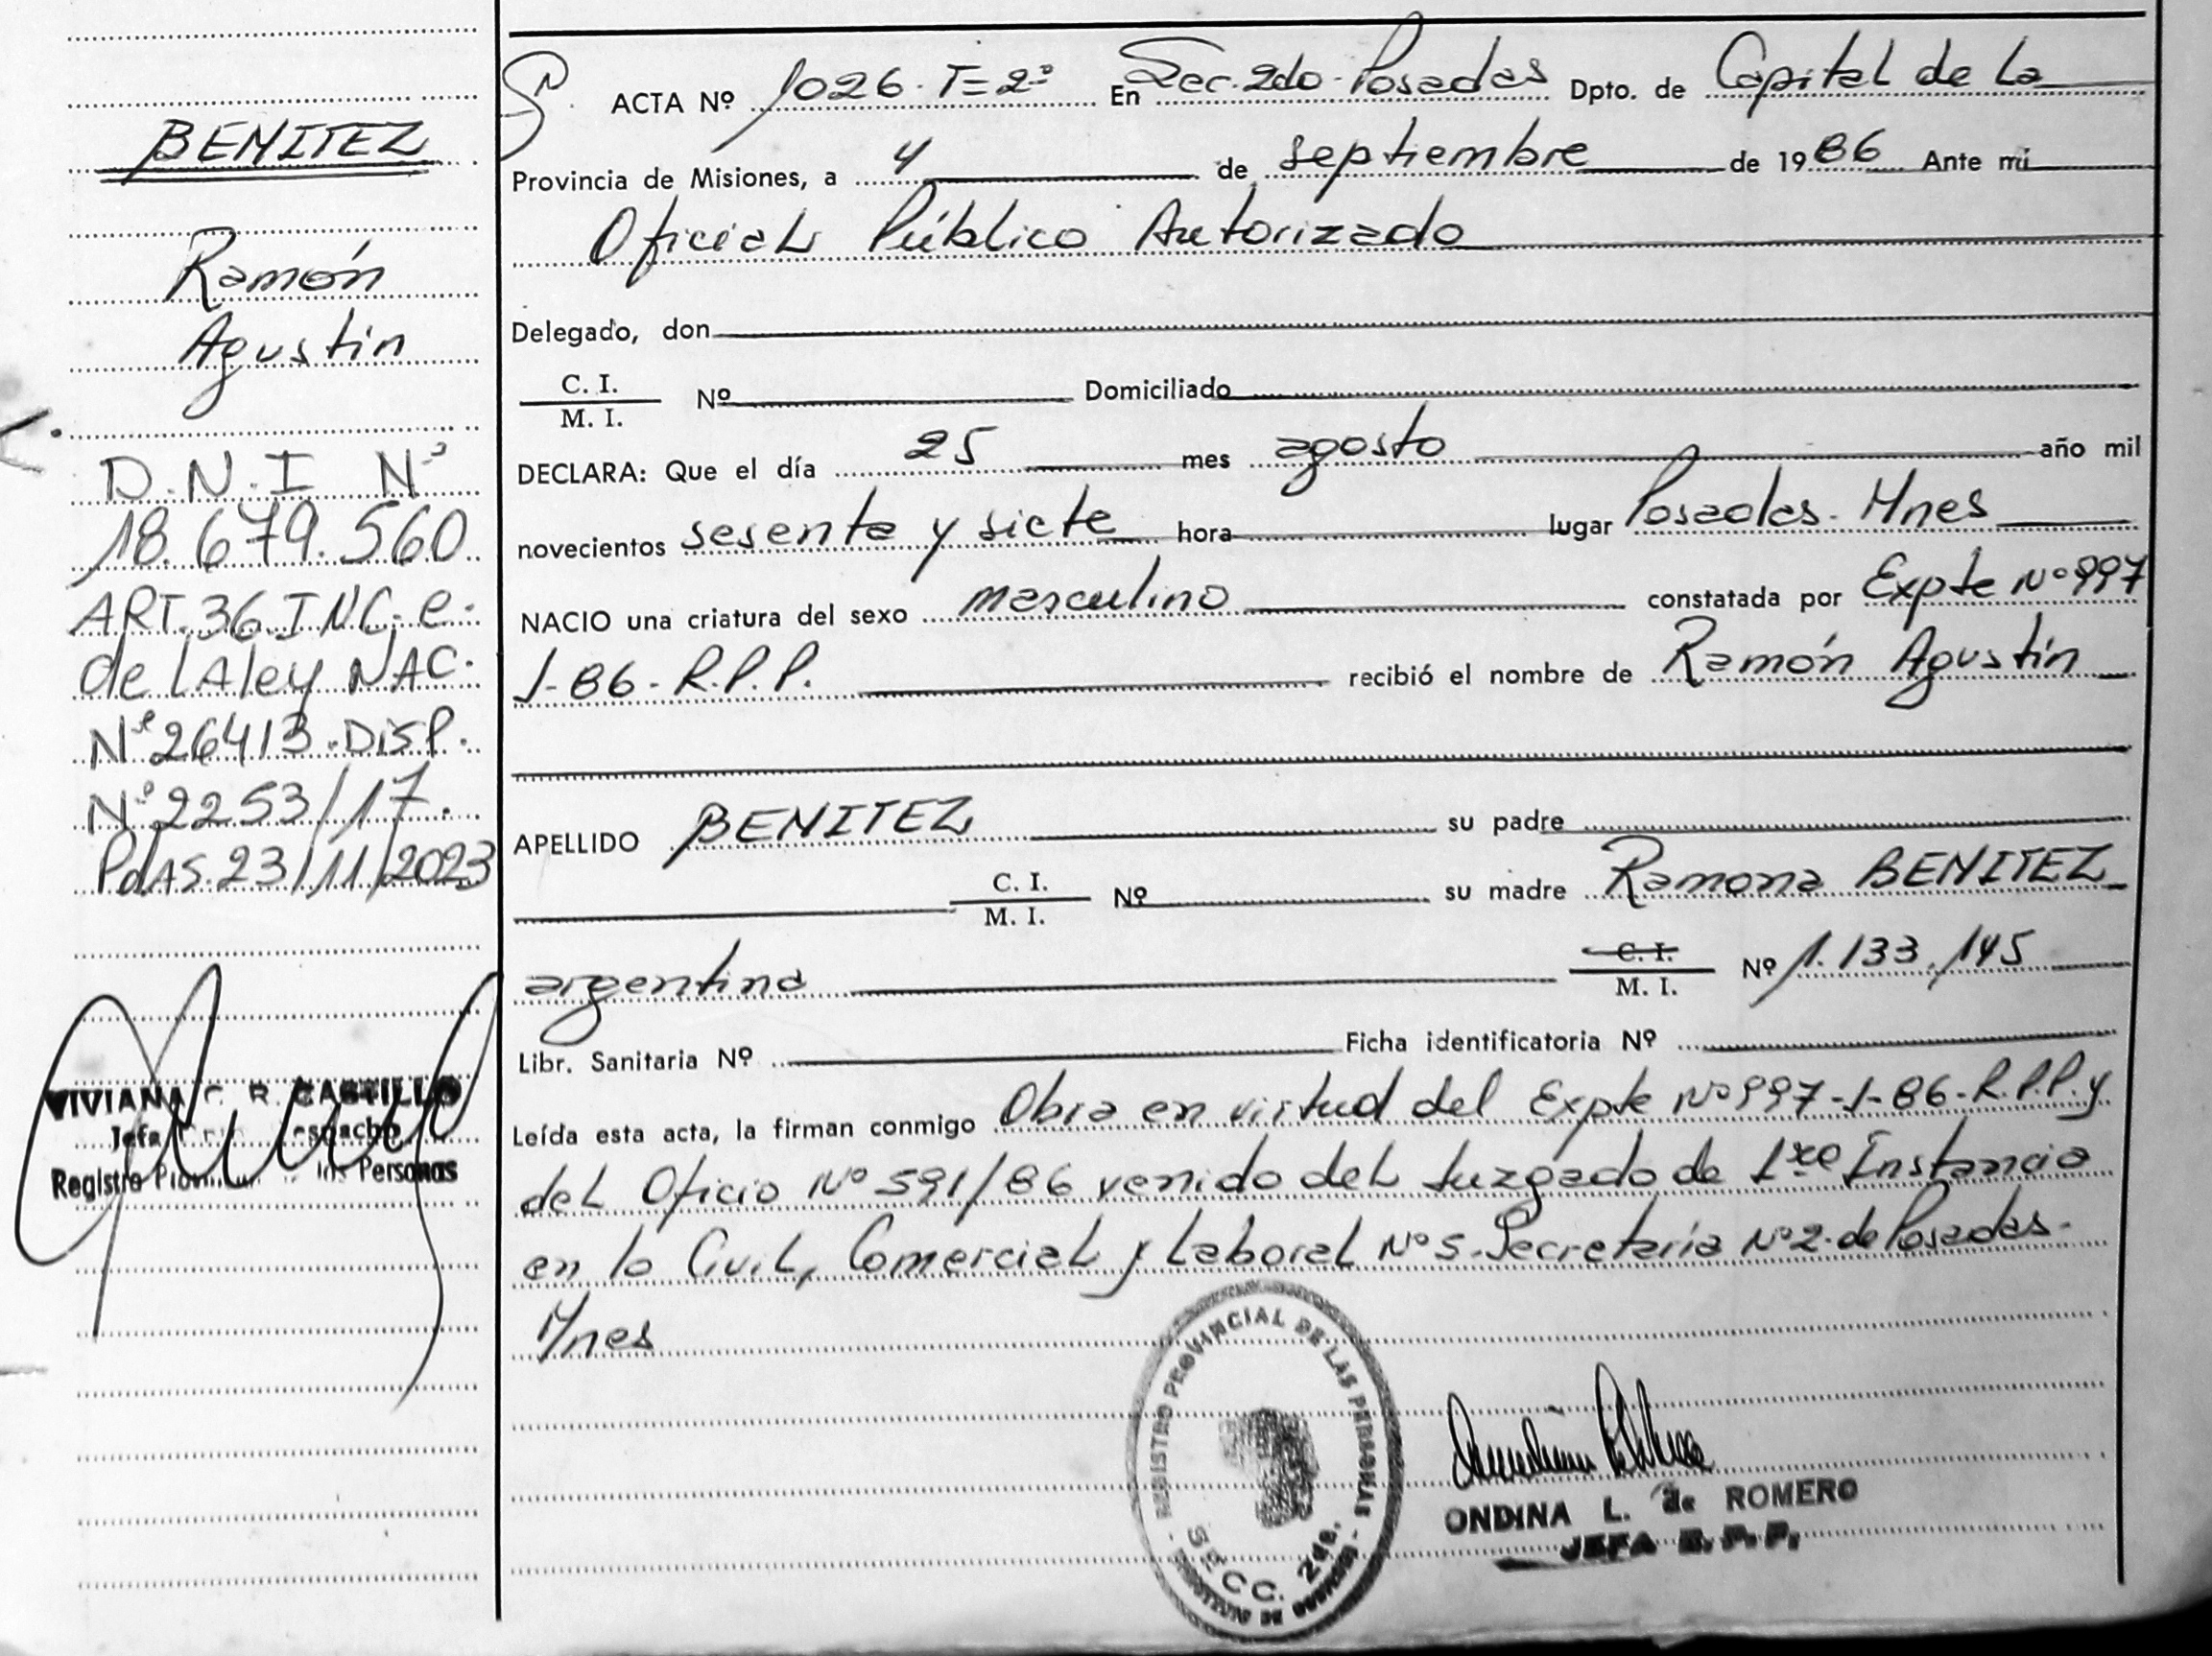 BENITEZ
Ramón
Agustin
D.N.I Nº
18.679.560
ART.36.INC.e.
de LAley NAC.
Nº26413.DISP.
Nº2253/17.
PdAS.23/11/2023
VIVIANA C. R. CASTILLO
Jefa
Registro Personas
ACTA Nº 1026.T=2º En Sec.2do.Posadas Dpto. de Capital de La
Provincia de Misiones, a 4 de septiembre de 1986 Ante mí
Oficial Público Autorizado
Delegado, don
C. I.
M. I.
Nº Domiciliado
DECLARA: Que el día 25 mes agosto año mil
novecientos sesenta y siete hora lugar Posadas.Mnes
NACIO una criatura del sexo masculino constatada por Expte Nº997
J-86-R.P.P. recibió el nombre de Ramón Agustin
APELLIDO BENITEZ su padre
C. I.
M. I.
Nº su madre Ramona BENITEZ
argentina C. I.
M. I.
Nº 1.133.145
Libr. Sanitaria Nº Ficha identificatoria Nº
Leída esta acta, la firman conmigo Obra en virtud del Expte Nº997-J-86-R.P.P.y
del Oficio Nº591/86 venido del Juzgado de 1ra Instancia
en lo Civil, Comercial y Laboral Nº5.Secretaria Nº2.de Posadas-
Mnes
REGISTRO PROVINCIAL DE LAS PERSONAS
SECC. 2da.
ONDINA L. de ROMERO
JEFA R. P. P.